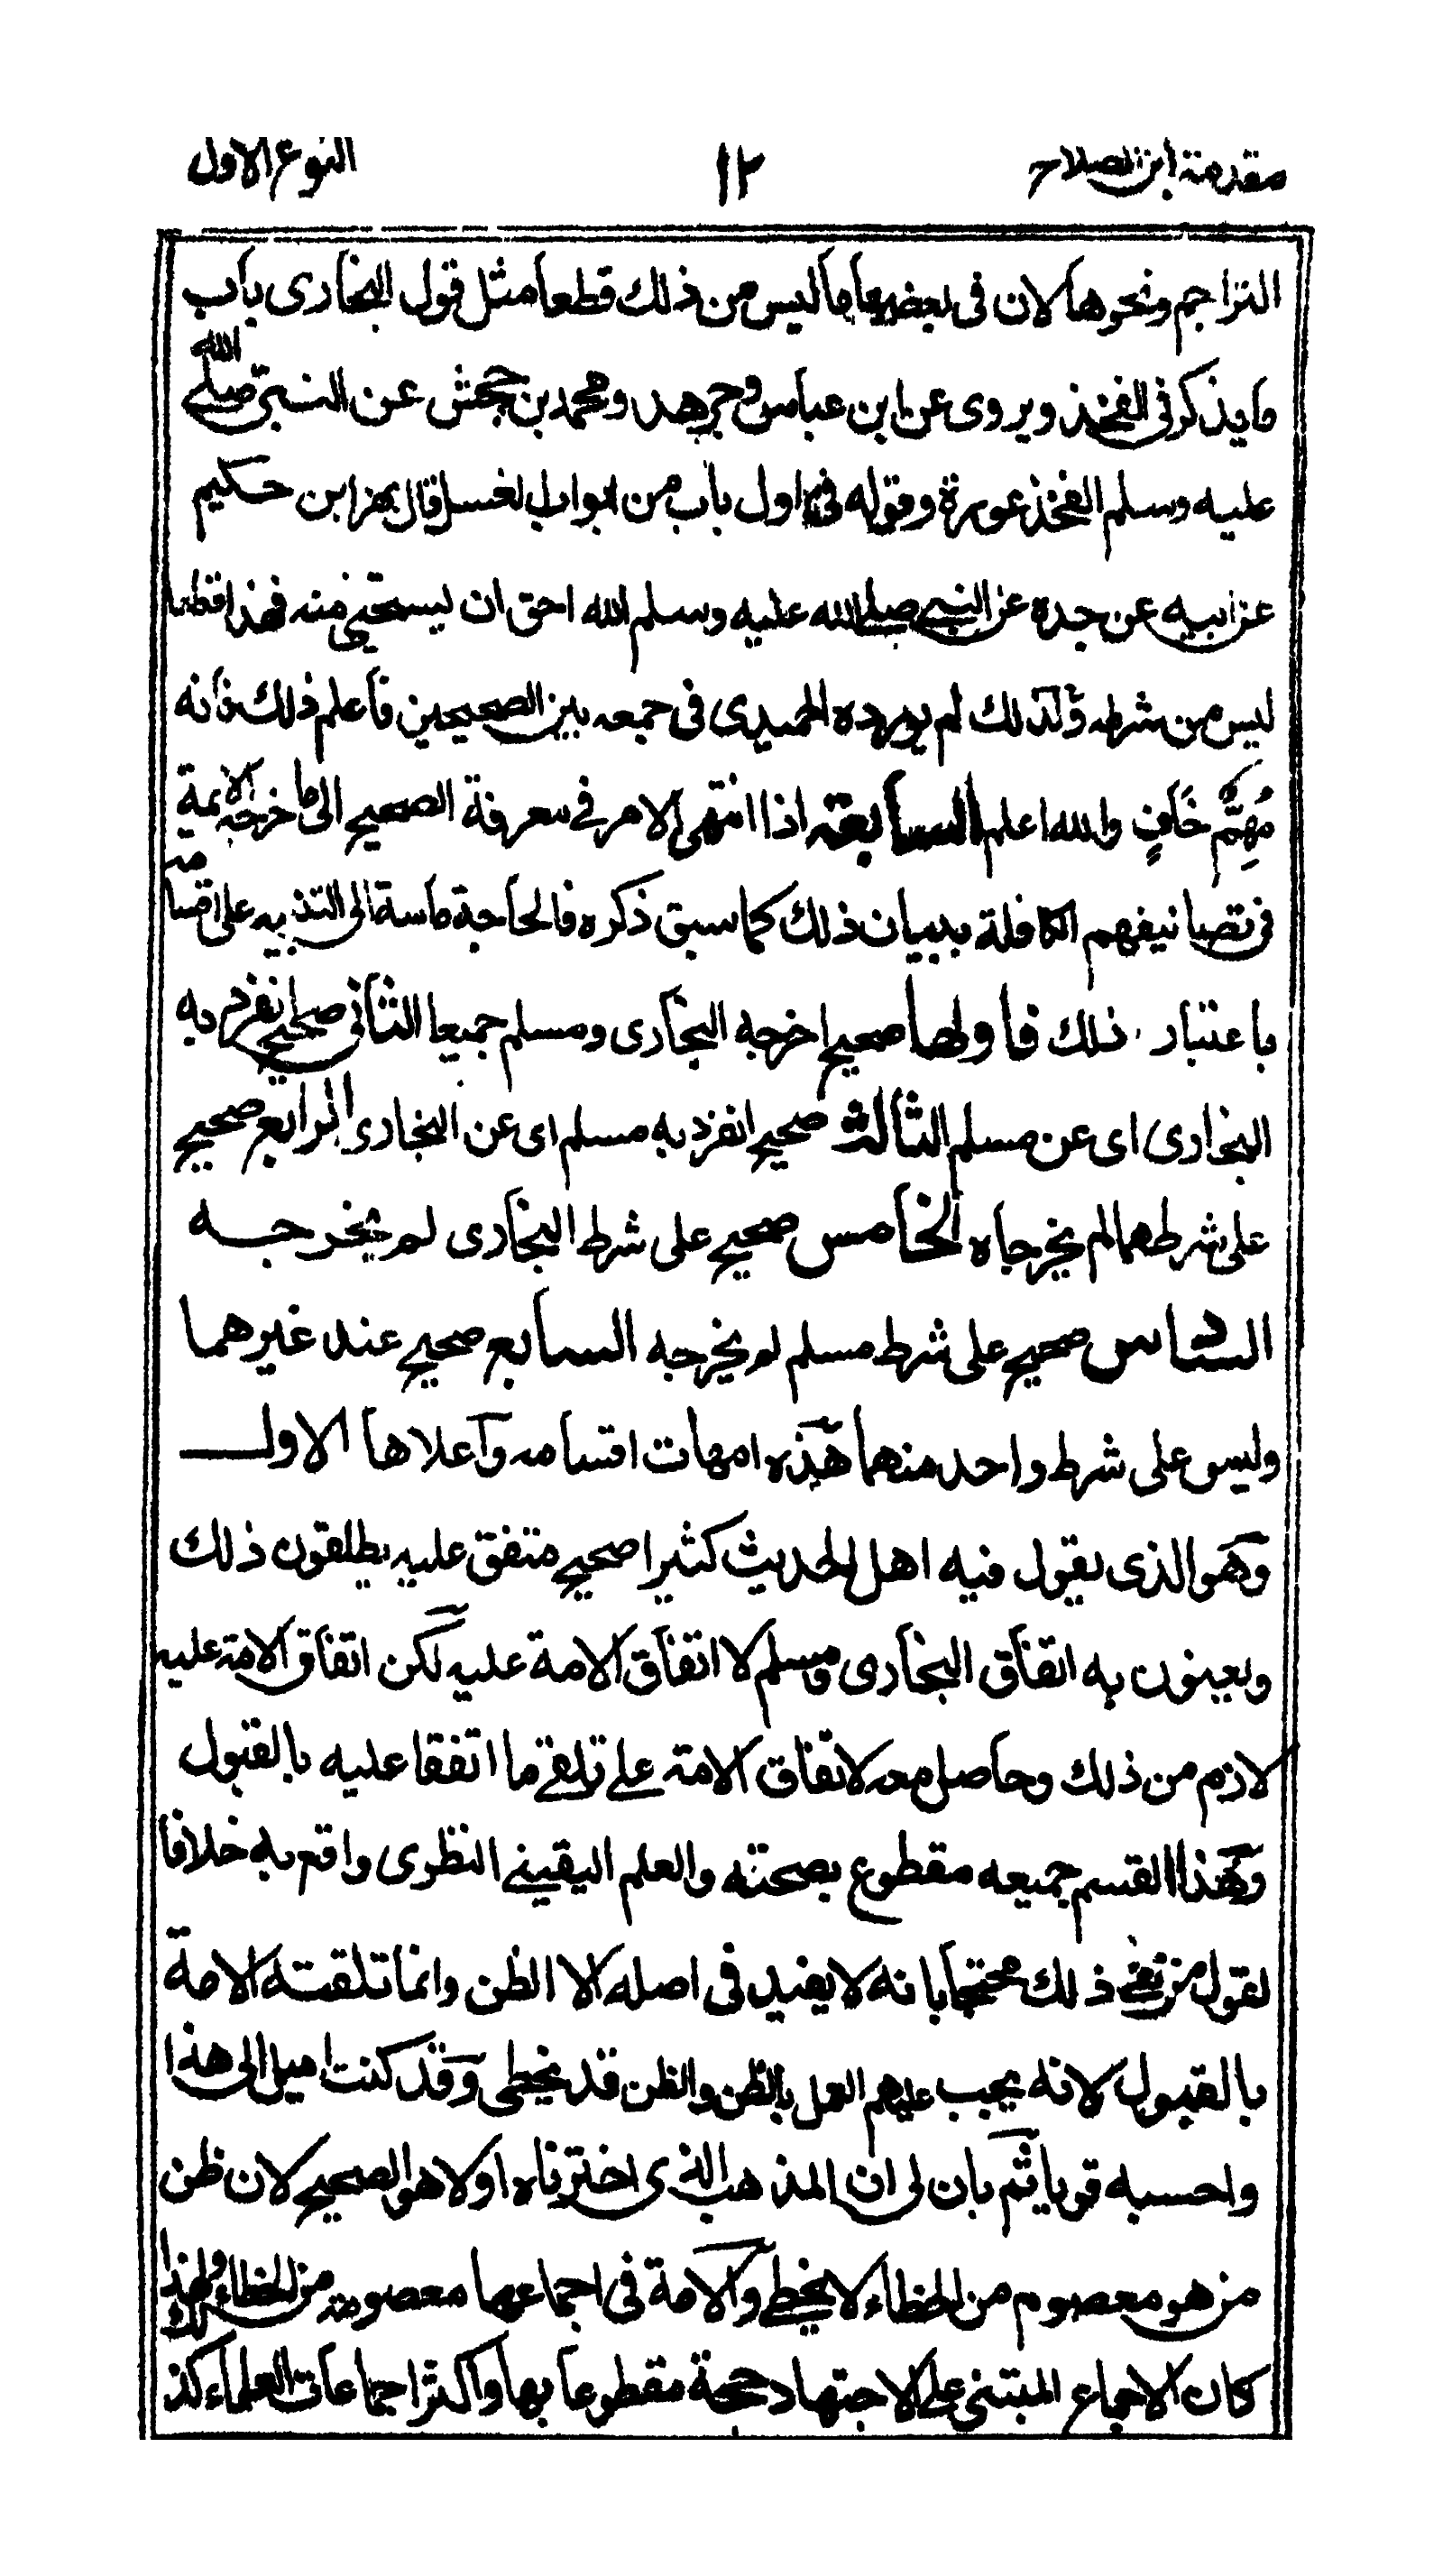 مقدمة ابن الصلاح ١٢ النوع الاول
التراجم ونحوها لان فى بعضها ما ليس من ذلك قطعا مثل قول البخارى باب
ما يذكر فى الفخذ ويروى عن ابن عباس وجرهد ومحمد بن جحش عن النبى صلى الله
عليه وسلم الفخذ عورة وقوله فى اول باب من ابواب لغسل قال بهز ابن حكيم
عن ابيه عن جده عن النبى صلى الله عليه وسلم الله احق ان يستحيى منه فهذا قطعا
ليس من شرطه ولذلك لم يورده الحميدى فى جمعه بين الصحيحين فاعلم ذلك فانه
مُهِمٌّ خَافٍ والله اعلم السابعة اذا انتهى الامر فى معرفة الصحيح الى ما خرجه الائمة
فى تصانيفهم الكافلة ببيان ذلك كما سبق ذكره فالحاجة ماسة الى التنبيه على اقسامه
باعتبار ذلك فاولها صحيح اخرجه البخارى ومسلم جميعا الثانى صحيح انفرد به
البخارى اى عن مسلم الثالث صحيح انفرد به مسلم اى عن البخارى الرابع صحيح
على شرطهما لم يخرجاه الخامس صحيح على شرط البخارى لم يخرجه
السادس صحيح على شرط مسلم لم يخرجه السابع صحيح عند غيرهما
وليس على شرط واحد منهما هذه امهات اقسامه واعلاها الاول
وهو الذى يقول فيه اهل الحديث كثيرا صحيح متفق عليه يطلقون ذلك
ويعينون به اتفاق البخارى ومسلم لا اتفاق الامة عليه لكن اتفاق الامة عليه
لازم من ذلك وحاصل معه لاتفاق الامة على تلقى ما اتفقا عليه بالقبول
وهذا القسم جميعه مقطوع بصحته والعلم اليقينى النظرى واقع به خلافا
لقول من نفى ذلك محتجا بانه لا يفيد فى اصله الا الظن وانما تلقته الامة
بالقبول لانه يجب عليهم العمل بالظن والظن قد يخطى وقد كنت اميل الى هذا
واحسبه قويا ثم بان لى ان المذهب الذى اخترناه اولا هو الصحيح لان ظن
من هو معصوم من الخطاء لا يخطى والامة فى اجماعها معصومة من الخطاء ولهذا
كان الاجماع المبتنى على الاجتهاد حجة مقطوعا بها واكثر اجماعات العلماء كذلك